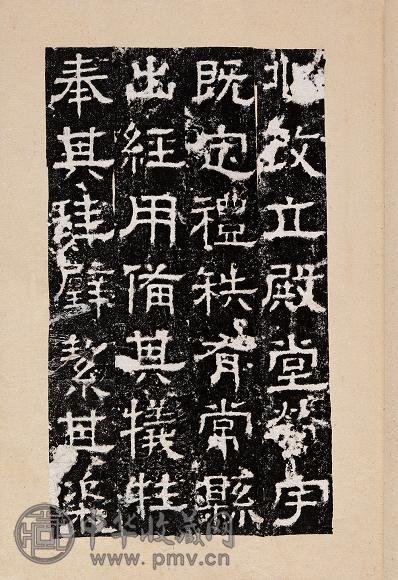 兆改立殿堂營宇
既定禮秩有常縣
出經用備其犧牲
奉其珪璧絜其粢
中华收藏网
www.pmv.cn